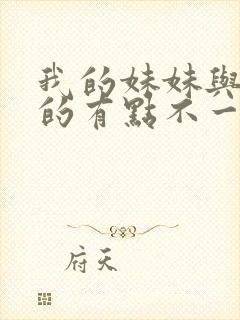 我的妹妹與
的有點不一
府天